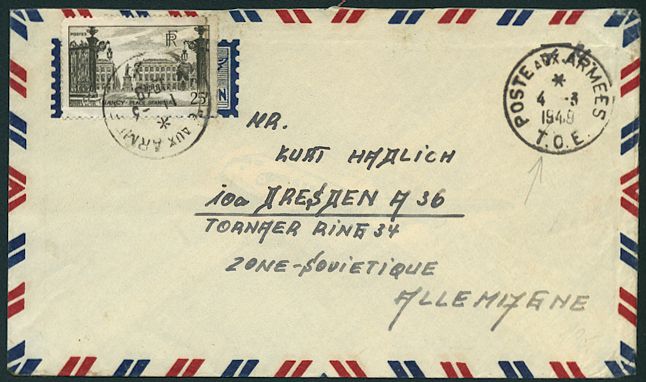 POSTES
RF
NANCY - PLACE STANISLAS
25F
POSTE AUX ARMEES
*
4 - 3
1949
T.O.E.
MR.
KURT HADLICH
10a DRESDEN A 36
TORNAER RING 34
ZONE-SOVIETIQUE
ALLEMAGNE